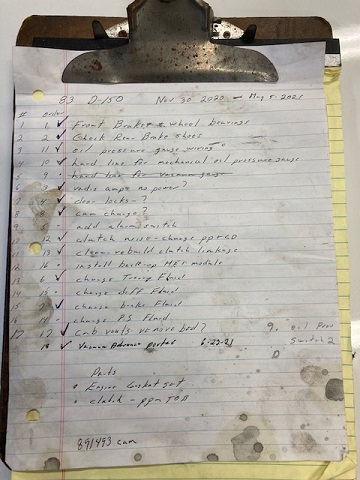 83 D-150 Nov 30 2020 - May 5 2021
# order
1 1 ✓ Front Brakes & wheel bearings
2 2 ✓ Check Rear Brake shoes
3 11 ✓ oil pressure gauge wiring
4 10 ✓ hard line for mechanical oil pressure gauge
5 9 - hard line for vacuum gauge
6 3 ✓ radio amps no power?
7 4 ✓ door locks-?
8 8 ✓ cam change?
9 - add alarm switch
12 ✓ clutch noise - change pp & CD
13 ✓ clean-rebuild clutch linkage
12 16 - install back-up module
13 6 ✓ change Trans Fluid
14 15 - change diff Fluid
5 ✓ change brake Fluid
16 14 - change P.S. Fluid
17 17 ✓ cab vents vs move bed? 9. oil Pres
18 ✓ Vacuum Advance ported 6-22-21 Switch 2
Parts
Engine Gasket set
clutch - ppm TOB
891493 cam